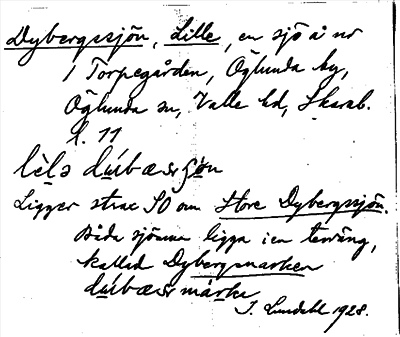 Dybergssjön, Lille, en sjö å nr
1 Torpegården, Öglunda by,
Öglunda sn, Valle hd, Skarab.
l. 11
Ligger strax SO om Store Dybergssjön.
Båda sjöarna ligga i en terräng,
kallad Dybergmarken
S. Lundahl 1928.